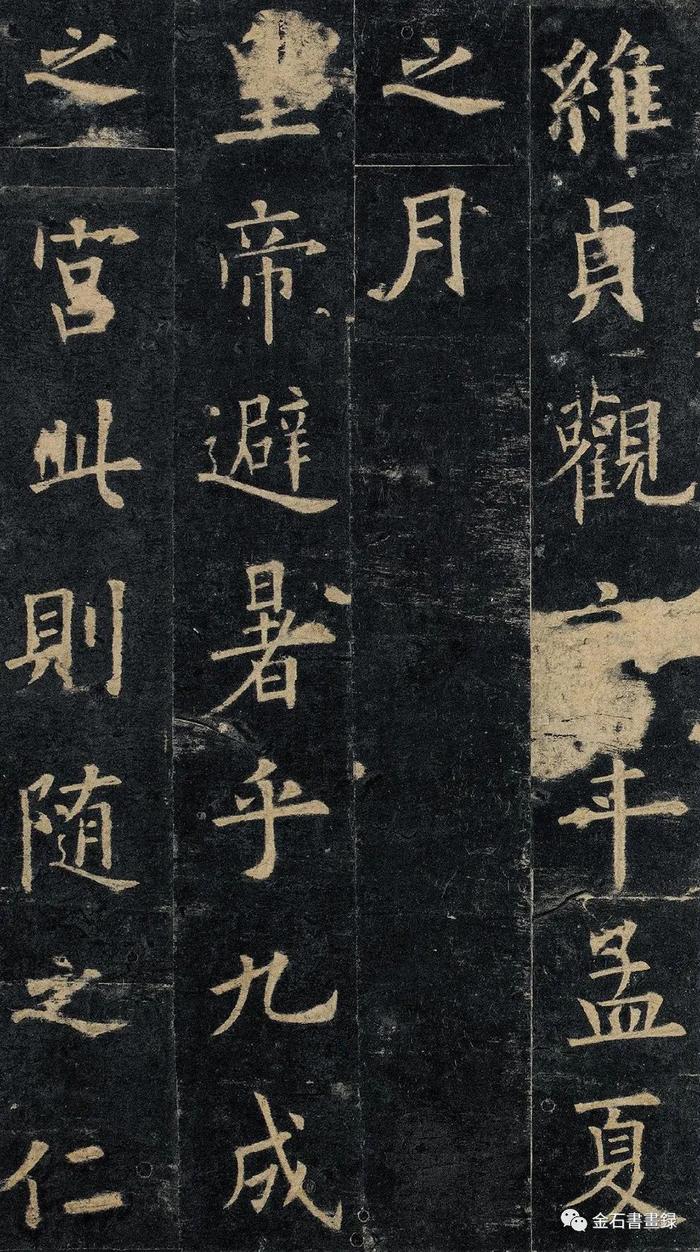 維貞觀六年孟夏
之月
皇帝避暑乎九成
之宮此則随之仁
金石書畫録